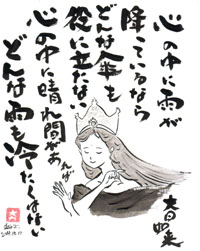 心の中に雨が
降っているなら
どんな傘も
役に立たない
心の中に晴れ間があれば
どんな雨も冷たくはない